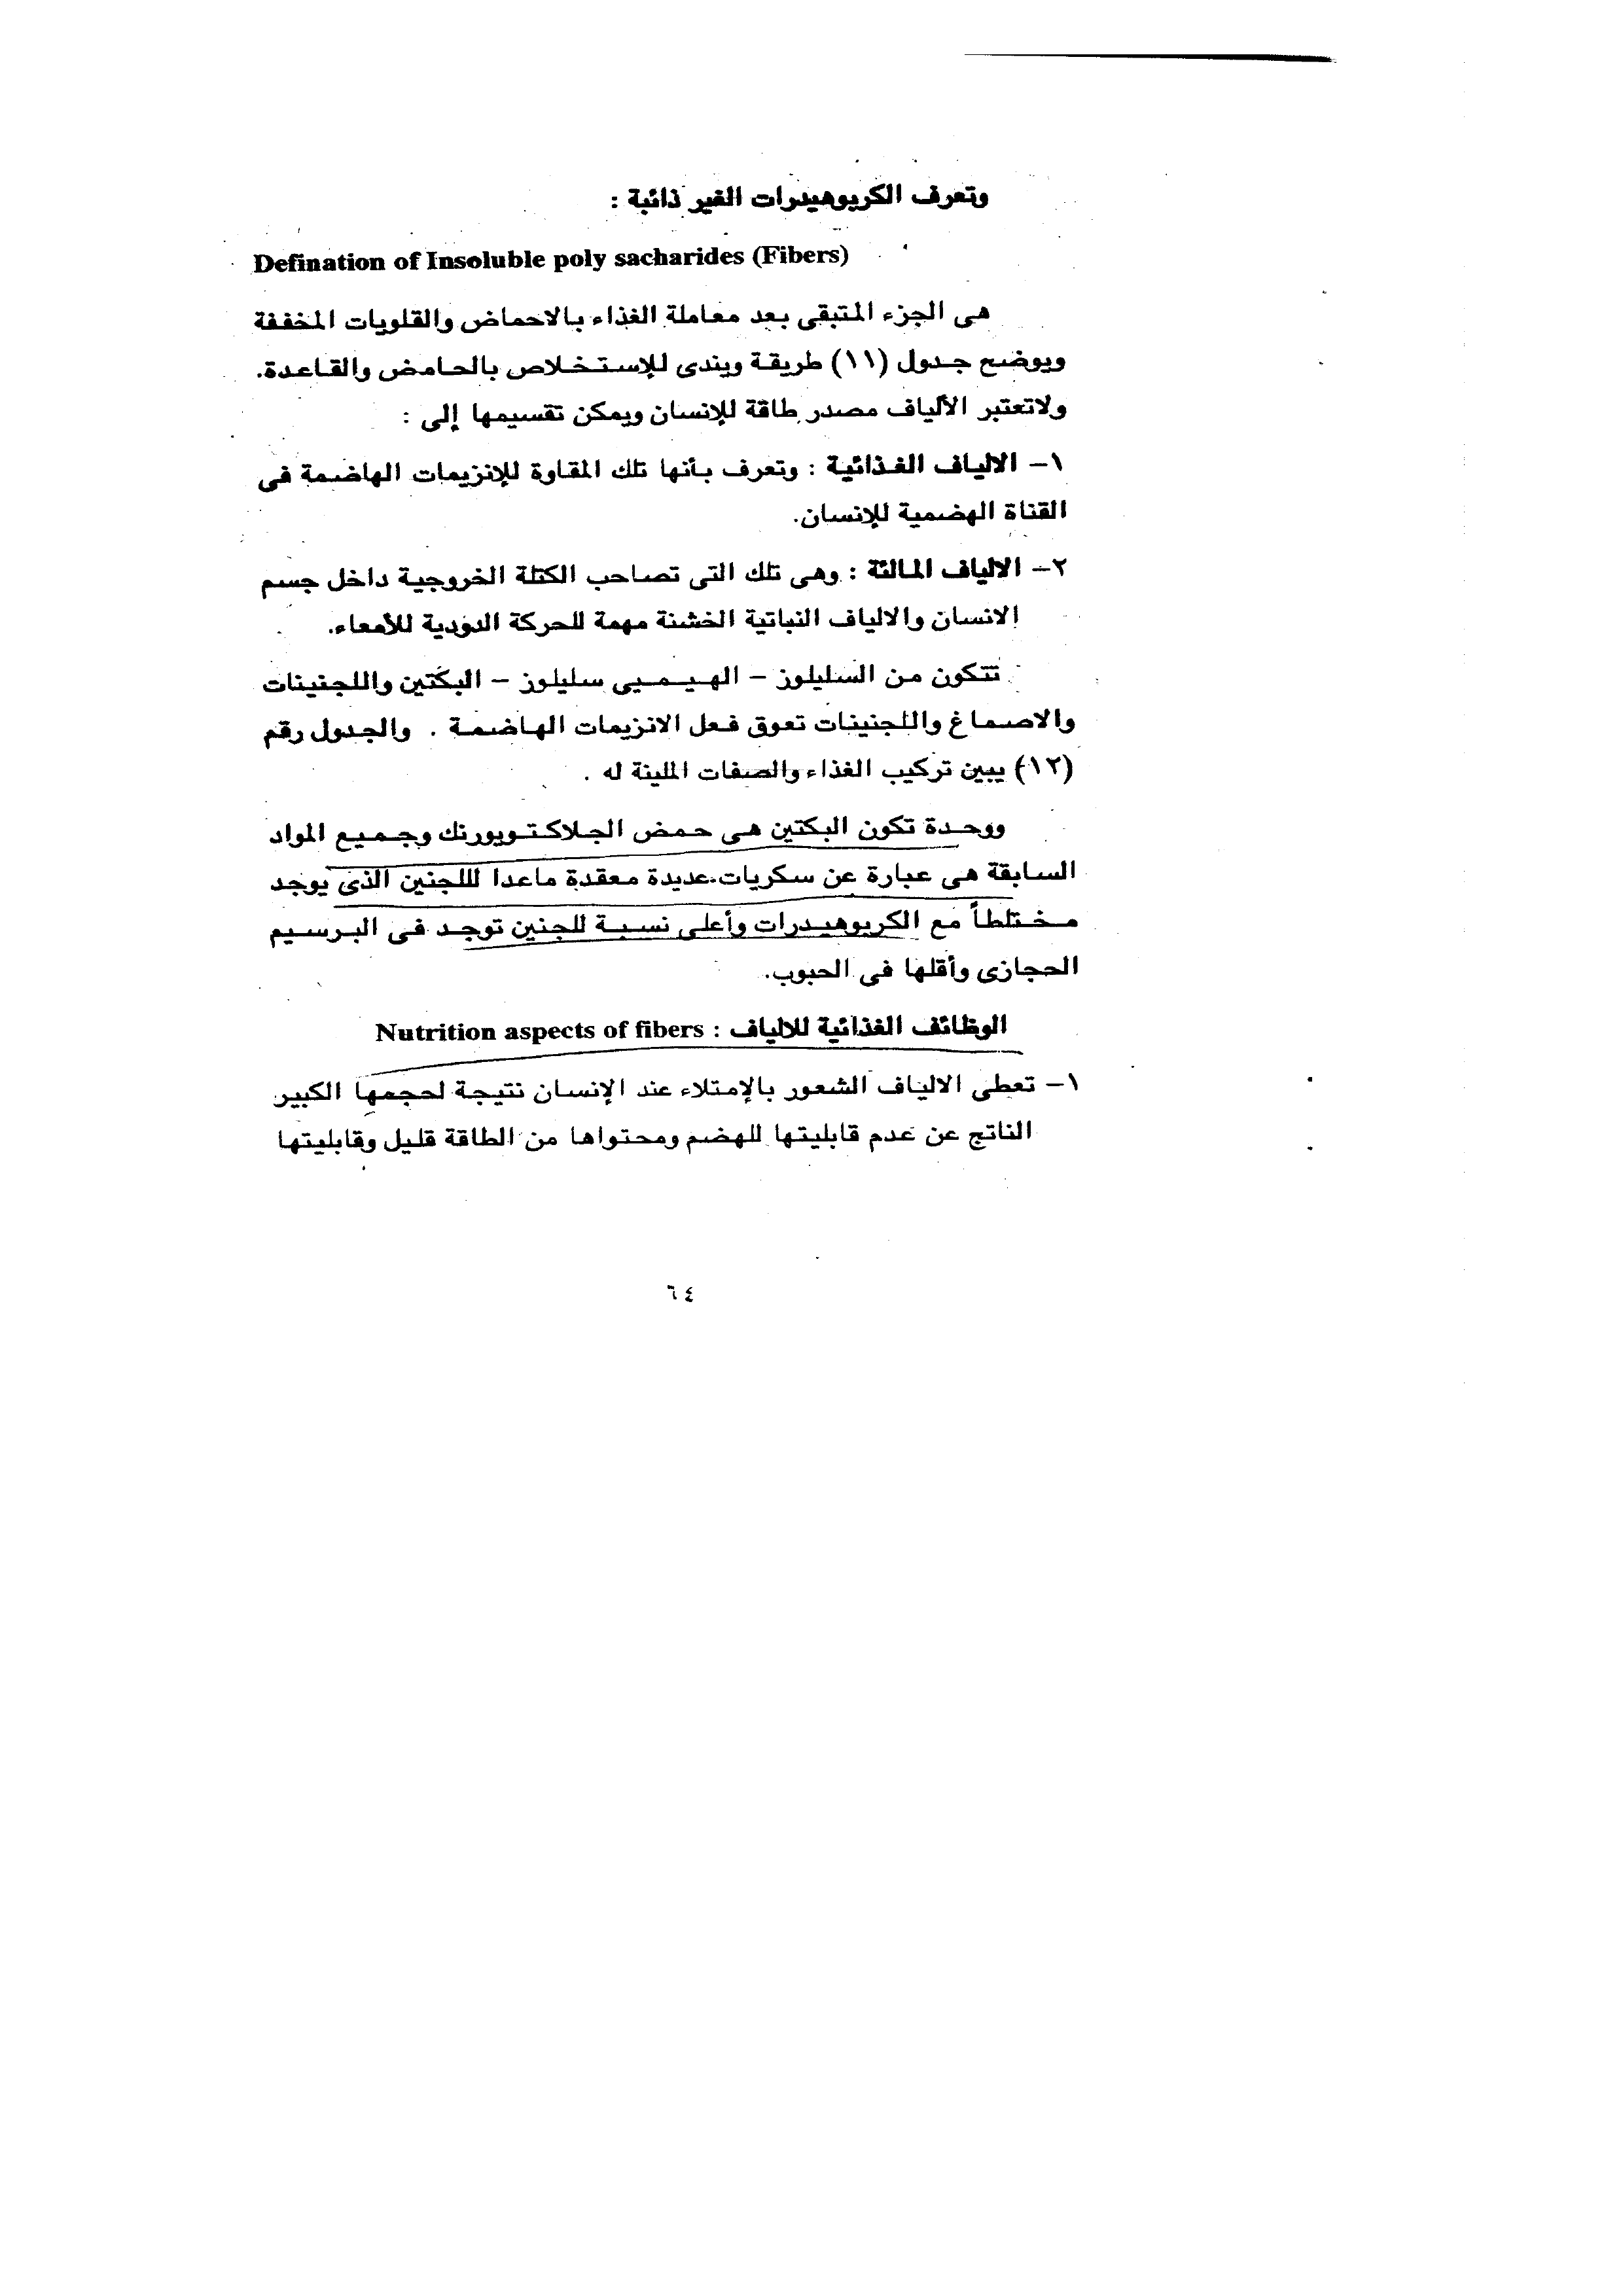 وتعرف الكربوهيدرات الغير ذائبة :
Defination of Insoluble poly sacharides (Fibers)
هى الجزء المتبقى بعد معاملة الغذاء بالاحماض والقلويات المخففة
ويوضح جدول (١١) طريقة ويندى للإستخلاص بالحامض والقاعدة.
ولاتعتبر الألياف مصدر طاقة للإنسان ويمكن تقسيمها إلى :
١– الالياف الغذائية : وتعرف بأنها تلك المقاوة للإنزيمات الهاضمة فى
القناة الهضمية للإنسان.
٢– الالياف المالئة : وهى تلك التى تصاحب الكتلة الخروجية داخل جسم
الانسان والالياف النباتية الخشنة مهمة للحركة الدودية للأمعاء.
تتكون من السليلوز – الهيميى سليلوز – البكتين واللجنينات
والاصماغ واللجنينات تعوق فعل الانزيمات الهاضمة . والجدول رقم
(١٢) يبين تركيب الغذاء والصفات الملينة له .
ووحدة تكون البكتين هى حمض الجلاكتويورنك وجميع المواد
السابقة هى عبارة عن سكريات عديدة معقدة ماعدا اللجنين الذى يوجد
مختلطاً مع الكربوهيدرات وأعلى نسبة للجنين توجد فى البرسيم
الحجازى وأقلها فى الحبوب.
الوظائف الغذائية للالياف : Nutrition aspects of fibers
١– تعطى الالياف الشعور بالإمتلاء عند الإنسان نتيجة لحجمها الكبير
الناتج عن عدم قابليتها للهضم ومحتواها من الطاقة قليل وقابليتها
٦٤